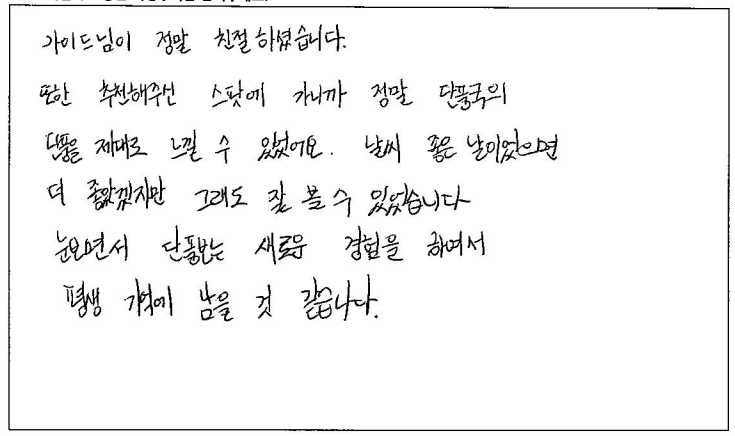 가이드님이 정말 친절하셨습니다.
또한 추천해주신 스팟에 가니까 정말 단풍국의
단풍을 제대로 느낄 수 있었어요. 날씨 좋은 날이었으면
더 좋았겠지만 그래도 잘 볼 수 있었습니다
눈보면서 단풍보는 새로운 경험을 하여서
평생 기억에 남을 것 같습니다.